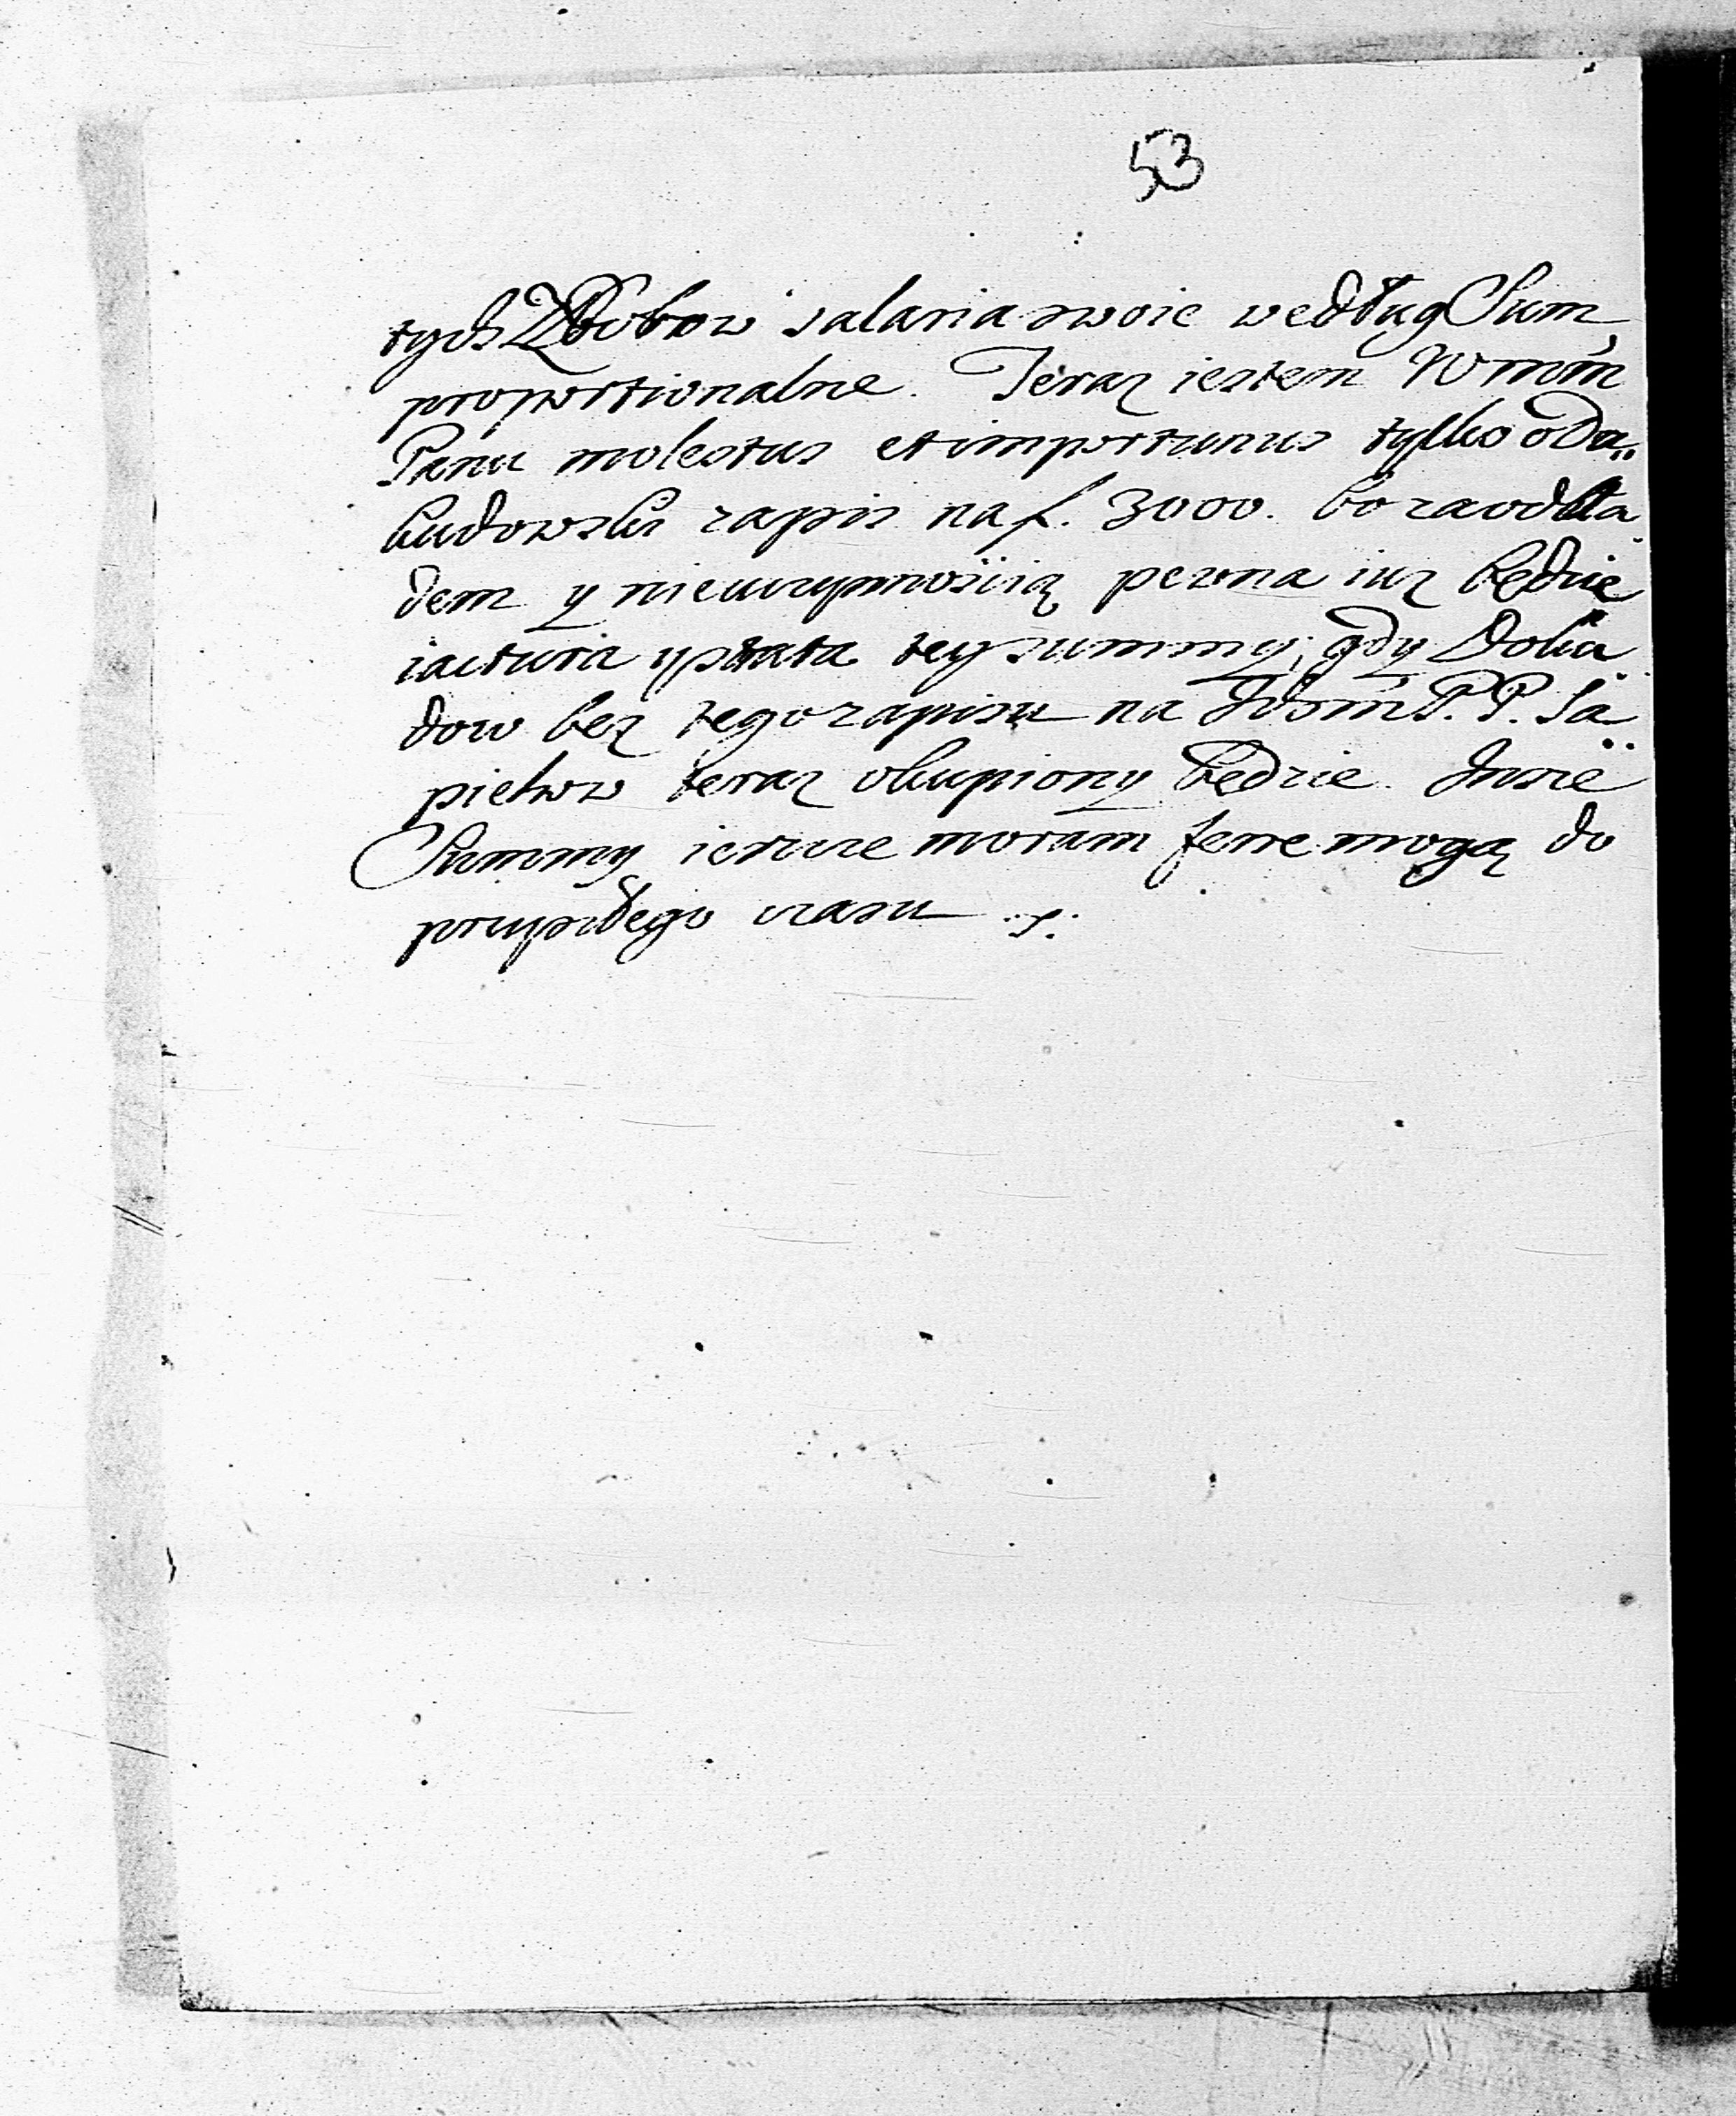 53
tych Zborow salaria swoie według Sum
proportionalne. Teraz iestem Wmm
Panu molestus et importunus tylko o Da„
kudowski zapis na f. 3000. bo za odkła„
dem y nieuczynnością pewna iuz będzie
iactura y strata tey summy, gdy Doku
dow bez tego zapisu na Ichm P. P. Sa„
piehow teraz okupiony będzie. Insze
Summy ieszcze moram ferre mogą do
przyszłego czasu